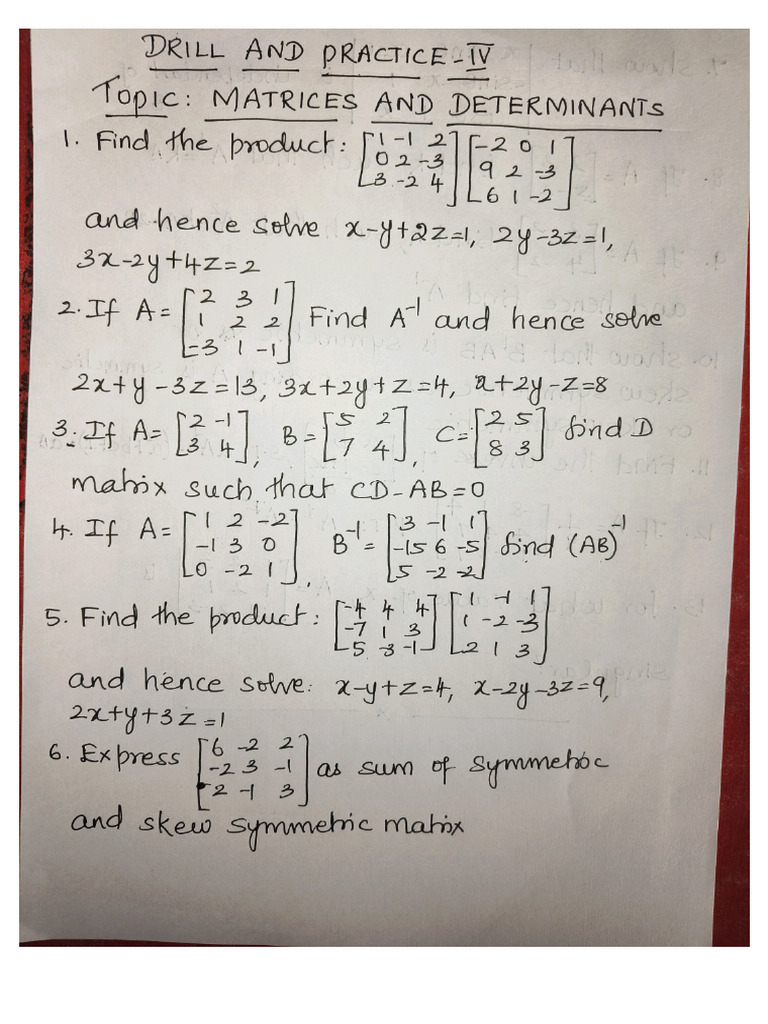 DRILL AND PRACTICE-IV
Topic: MATRICES AND DETERMINANTS
1. Find the product: [1 -1 2; 0 2 -3; 3 -2 4] [-2 0 1; 9 2 -3; 6 1 -2]
and hence solve x-y+2z=1, 2y-3z=1,
3x-2y+4z=2
2. If A= [2 3 1; 1 2 2; -3 1 -1] Find A⁻¹ and hence solve
2x+y-3z=13, 3x+2y+z=4, x+2y-z=8
3. If A= [2 -1; 3 4], B= [5 2; 7 4], C= [2 5; 8 3] find D
matrix such that CD-AB=0
4. If A= [1 2 -2; -1 3 0; 0 -2 1], B⁻¹= [3 -1 1; -15 6 -5; 5 -2 -2] find (AB)⁻¹
5. Find the product: [-4 4 4; -7 1 3; 5 -3 -1] [1 -1 1; 1 -2 -3; 2 1 3]
and hence solve: x-y+z=4, x-2y-3z=9,
2x+y+3z=1
6. Express [6 -2 2; -2 3 -1; 2 -1 3] as sum of symmetric
and skew symmetric matrix